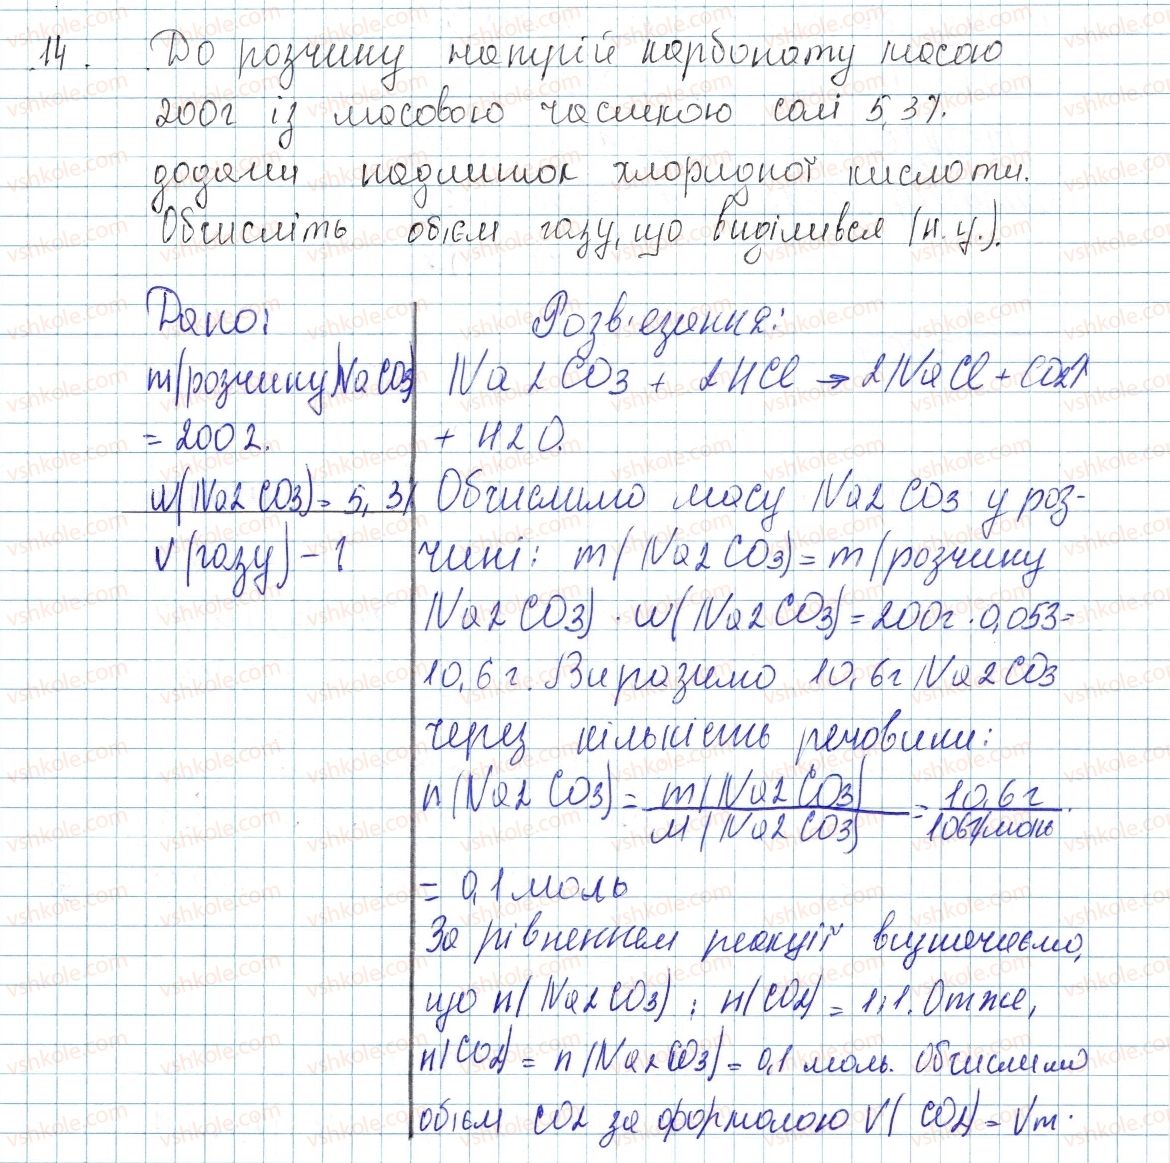 14. До розчину натрій карбонату масою
200г із масовою часткою солі 5,3%.
додали надлишок хлоридної кислоти.
Обчисліть об'єм газу, що виділився (н.у.).
Дано:
m(розчину NaCO3)
= 200г.
w(Na2CO3) = 5,3%
V(газу) - ?
Розв'язання:
Na2CO3 + 2HCl → 2NaCl + CO2↑
+ H2O.
Обчислимо масу Na2CO3 у роз-
чині: m(Na2CO3) = m(розчину
Na2CO3) · w(Na2CO3) = 200г · 0,053 =
10,6г. Виразимо 10,6г Na2CO3
через кількість речовини:
n(Na2CO3) = m(Na2CO3) / M(Na2CO3) = 10,6г / 106г/моль
= 0,1 моль
За рівнянням реакції визначаємо,
що n(Na2CO3) : n(CO2) = 1:1. Отже,
n(CO2) = n(Na2CO3) = 0,1 моль. Обчислимо
об'єм CO2 за формолою V(CO2) = Vm ·